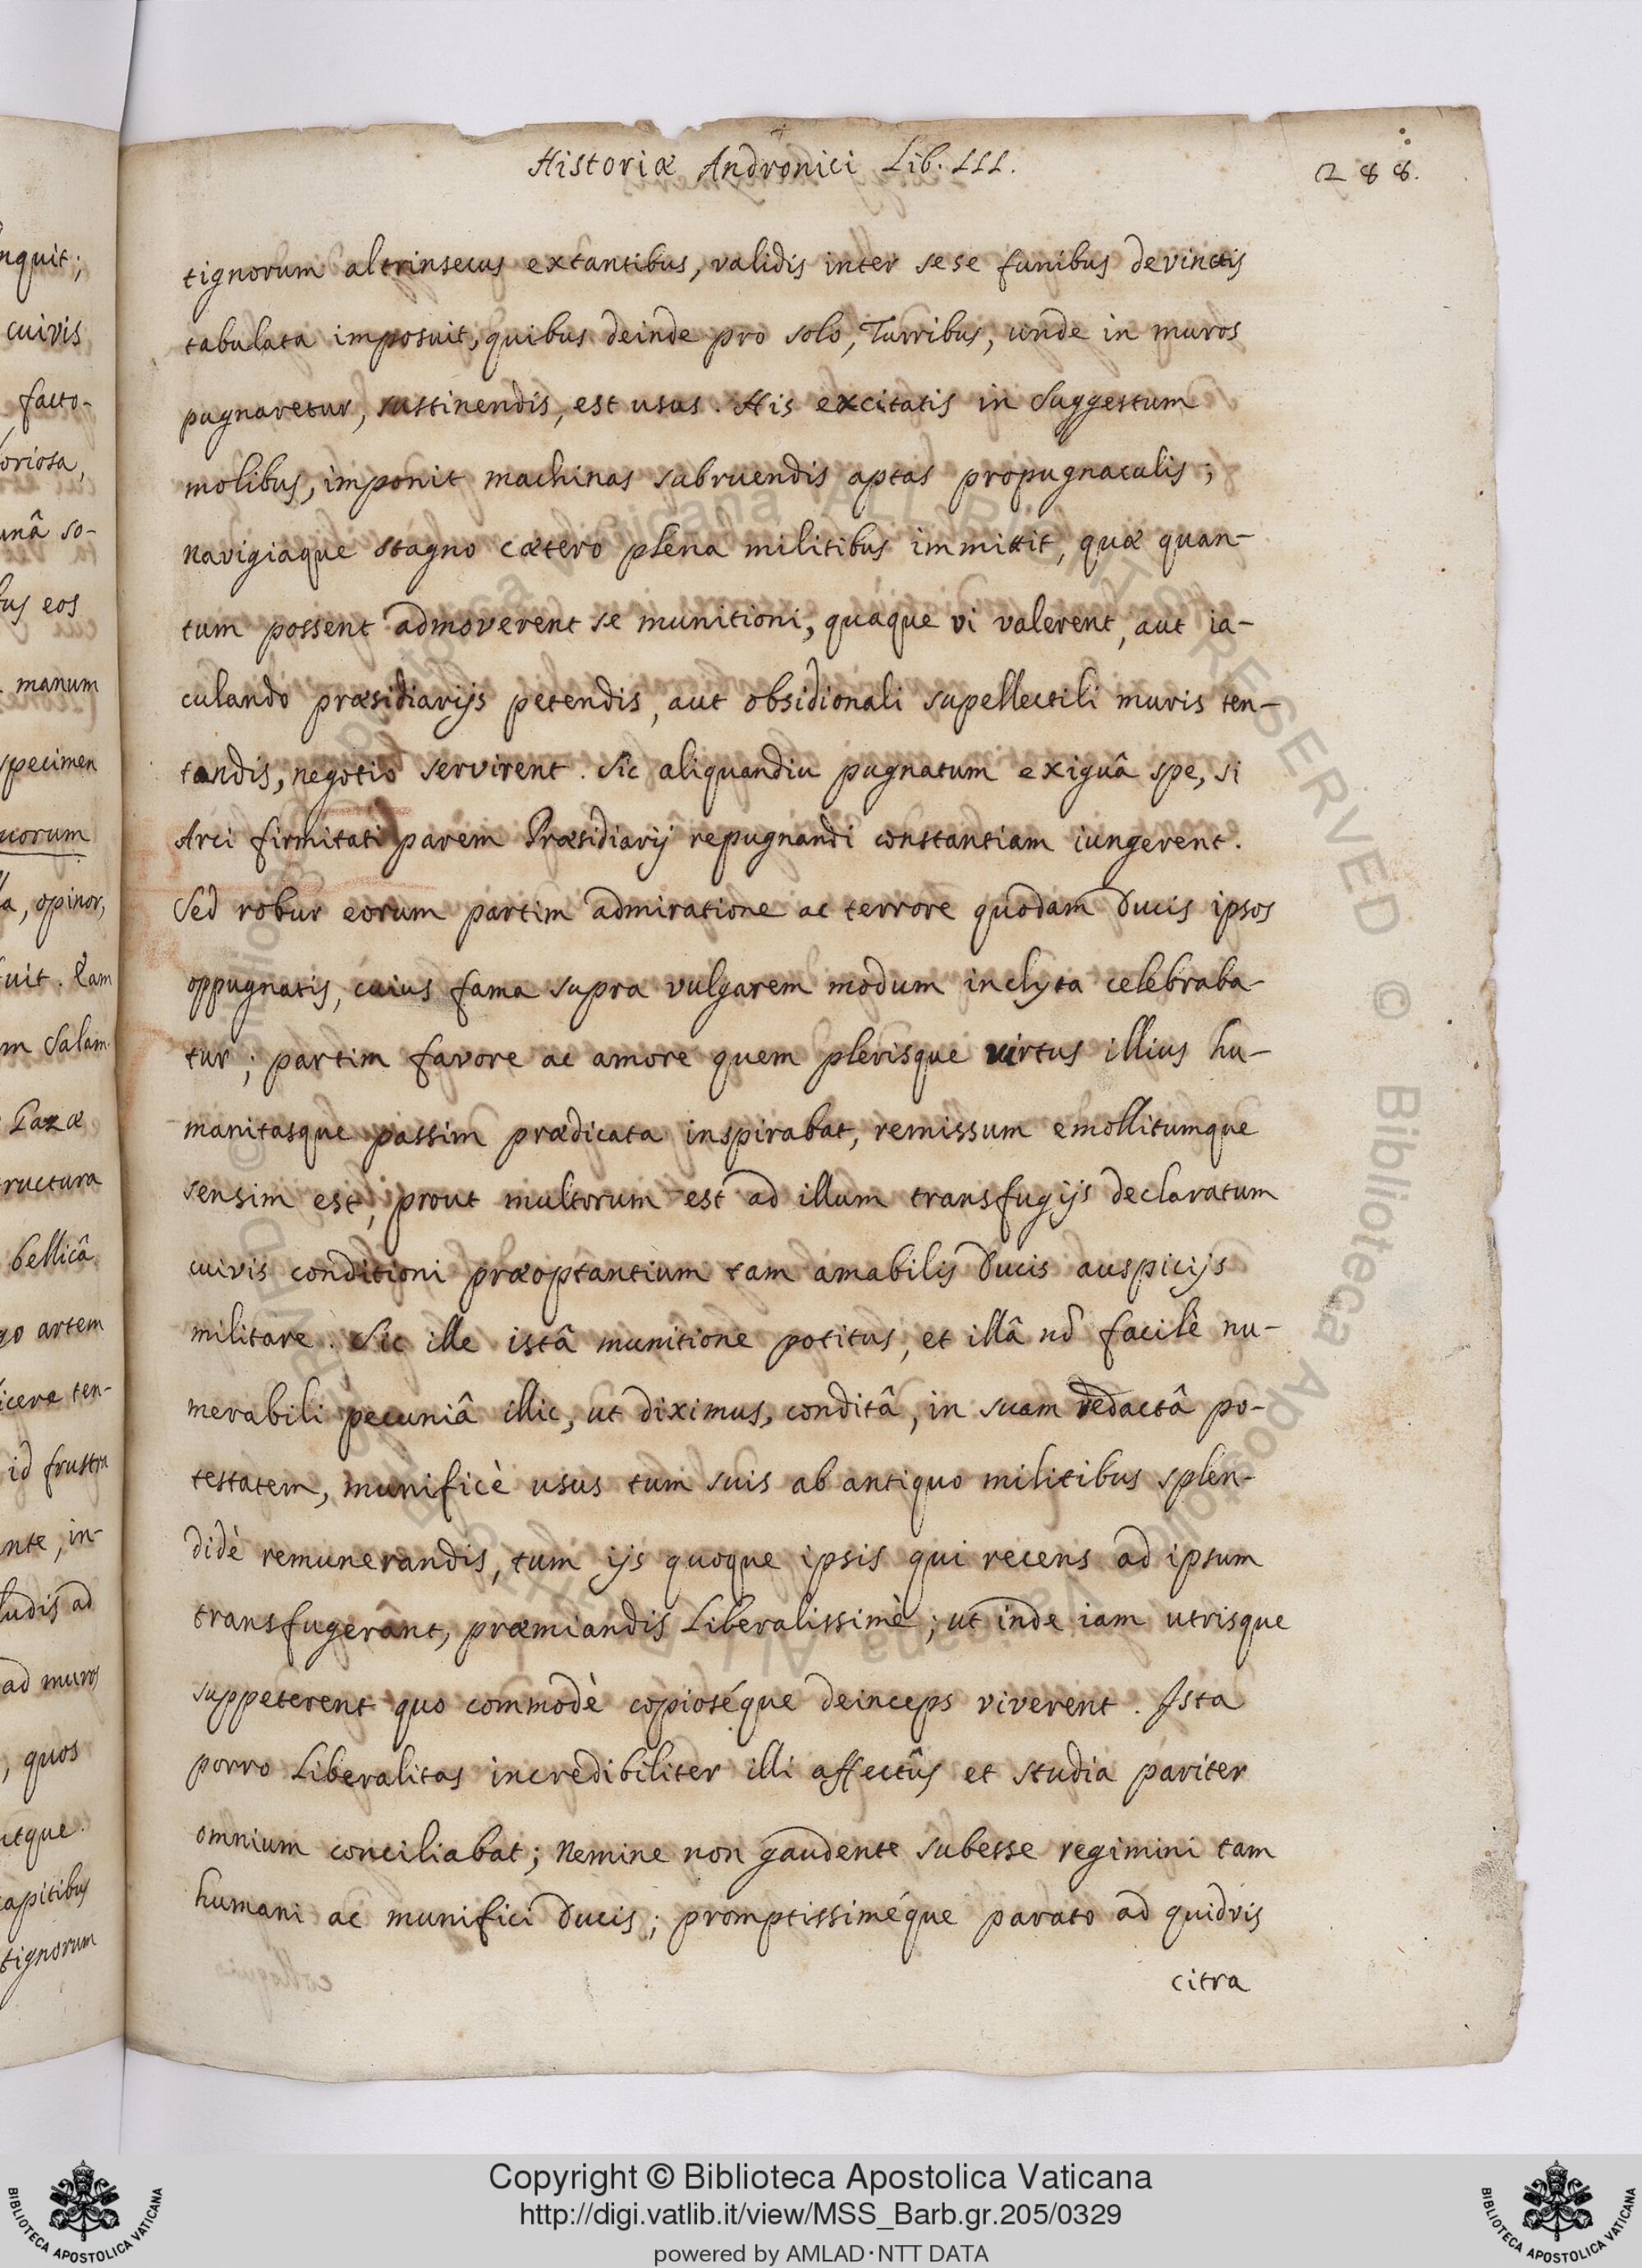 Historiæ Andronici Lib. III.
288.
tignorum altrinsecus extantibus, validis inter sese funibus devinctis
tabulata imposuit, quibus deinde pro solo, Turribus, unde in muros
pugnaretur, sustinendis, est usus. His excitatis in Suggestum
molibus, imponit machinas subruendis aptas propugnaculis;
navigiaque stagno cætero plena militibus immittit, quæ quan-
tum possent admoverent se munitioni, quaque vi valerent, aut ia-
culando præsidiarijs petendis, aut obsidionali supellectili muris ten-
tandis, negotio servirent. Sic aliquandiu pugnatum exiguâ spe, si
Arci firmitati parem Præsidiarij repugnandi constantiam iungerent.
Sed robur eorum partim admiratione ac terrore quodam Ducis ipsos
oppugnatis, cuius fama supra vulgarem modum inclyta celebraba-
tur; partim favore ac amore quem plerisque virtus illius hu-
manitasque passim prædicata inspirabat, remissum emollitumque
sensim est, prout multorum est ad illum transfugijs declaratum
cuivis conditioni præoptantium tam amabilis Ducis auspicijs
militare. Sic ille istâ munitione potitus, et illâ nō facilè nu-
merabili pecuniâ illic, ut diximus, conditâ, in suam redactâ po-
testatem, munificè usus tum suis ab antiquo militibus splen-
didè remunerandis, tum ijs quoque ipsis qui recens ad ipsum
transfugerânt, præmiandis Liberalissimè; ut inde iam utrisque
suppeterent quo commodè copioséque deinceps viverent. Ista
porro Liberalitas incredibiliter illi affectûs et studia pariter
omnium conciliabat; Nemine non gaudente subesse regimini tam
humani ac munifici Ducis; promptissiméque parato ad quidvis
citra
nquit;
cuivis
facto-
oriosa,
unâ so-
eos
manum
specimen
uorum
a, opinor,
uit. Eam
m Salam
Gazæ
ructura
bellicâ
go artem
icere ten-
id frustra
nte, in-
ludis ad
ad muros
, quos
utque
apitibus
tignorum
Copyright © Biblioteca Apostolica Vaticana
http://digi.vatlib.it/view/MSS_Barb.gr.205/0329
powered by AMLAD·NTT DATA
BIBLIOTECA APOSTOLICA VATICANA
BIBLIOTECA APOSTOLICA VATICANA
© Biblioteca Apostolica Vicana ALL RIGHTS RESERVED